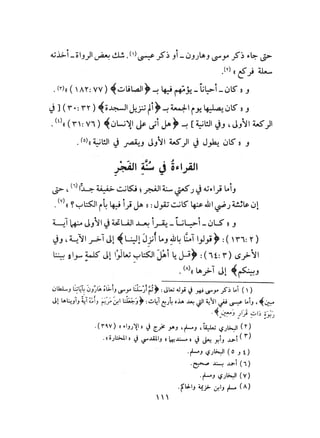 حتى جاء ذكر موسى وهارون - أو ذكر عيسى(١). شك بعض الرواة - أخذته
سعلة فركع »(٢).
و « كان - أحياناً - يؤمهم فيها بـ ﴿ الصافات ﴾ (٧٧ : ١٨٢) »(٣).
و « كان يصليها يوم الجمعة بـ ﴿ ألم تنزيل السجدة ﴾ (٣٢ : ٣٠) [ في
الركعة الأولى ، وفي الثانية ] بـ ﴿ هل أتى على الإنسان ﴾ (٧٦ : ٣١) »(٤).
و « كان يطول في الركعة الأولى ويقصر في الثانية »(٥).
القراءة في سُنَّة الفَجْر
وأما قراءته في ركعتي سنة الفجر ، فكانت خفيفة جداً(٦) ، حتى
إن عائشة رضي الله عنها كانت تقول : « هل قرأ فيها بأم الكتاب ؟ »(٧).
و « كان - أحياناً - يقرأ بعد الفاتحة في الأولى منهما آية
(٢ : ١٣٦) : ﴿ قولوا آمنَّا بالله وما أُنزل إلينا ﴾ إلى آخر الآية ، وفي
الأخرى (٣ : ٦٤) : ﴿ قل يا أهلَ الكتاب تعالَوْا إلى كلمةٍ سواءٍ بيننا
وبينكم ﴾ إلى آخرها »(٨).
(١) أما ذكر موسى فهو في قوله تعالى : ﴿ ثُمَّ أَرْسَلْنَا موسى وأَخَاهُ هارونَ بآيَاتِنَا وسلطانٍ
مبين ﴾ ، وأما عيسى ففي الآية التي بعد هذه بأربع آيات : ﴿ وَجَعَلْنَا ابنَ مَرْيَمَ وأُمَّهُ آيةً وآويناهما إلى
رَبْوَةٍ ذاتِ قَرَارٍ ومَعِينٍ ﴾ .
(٢) البخاري تعليقاً ، ومسلم ، وهو مخرج في « الإرواء » (٣٩٧) .
(٣) أحمد وأبو يعلى في « مسنديهما » والمقدسي في « المختارة » .
(٤ و ٥) البخاري ومسلم .
(٦) أحمد بسند صحيح .
(٧) البخاري ومسلم .
(٨) مسلم وابن خزيمة والحاكم .
١١١